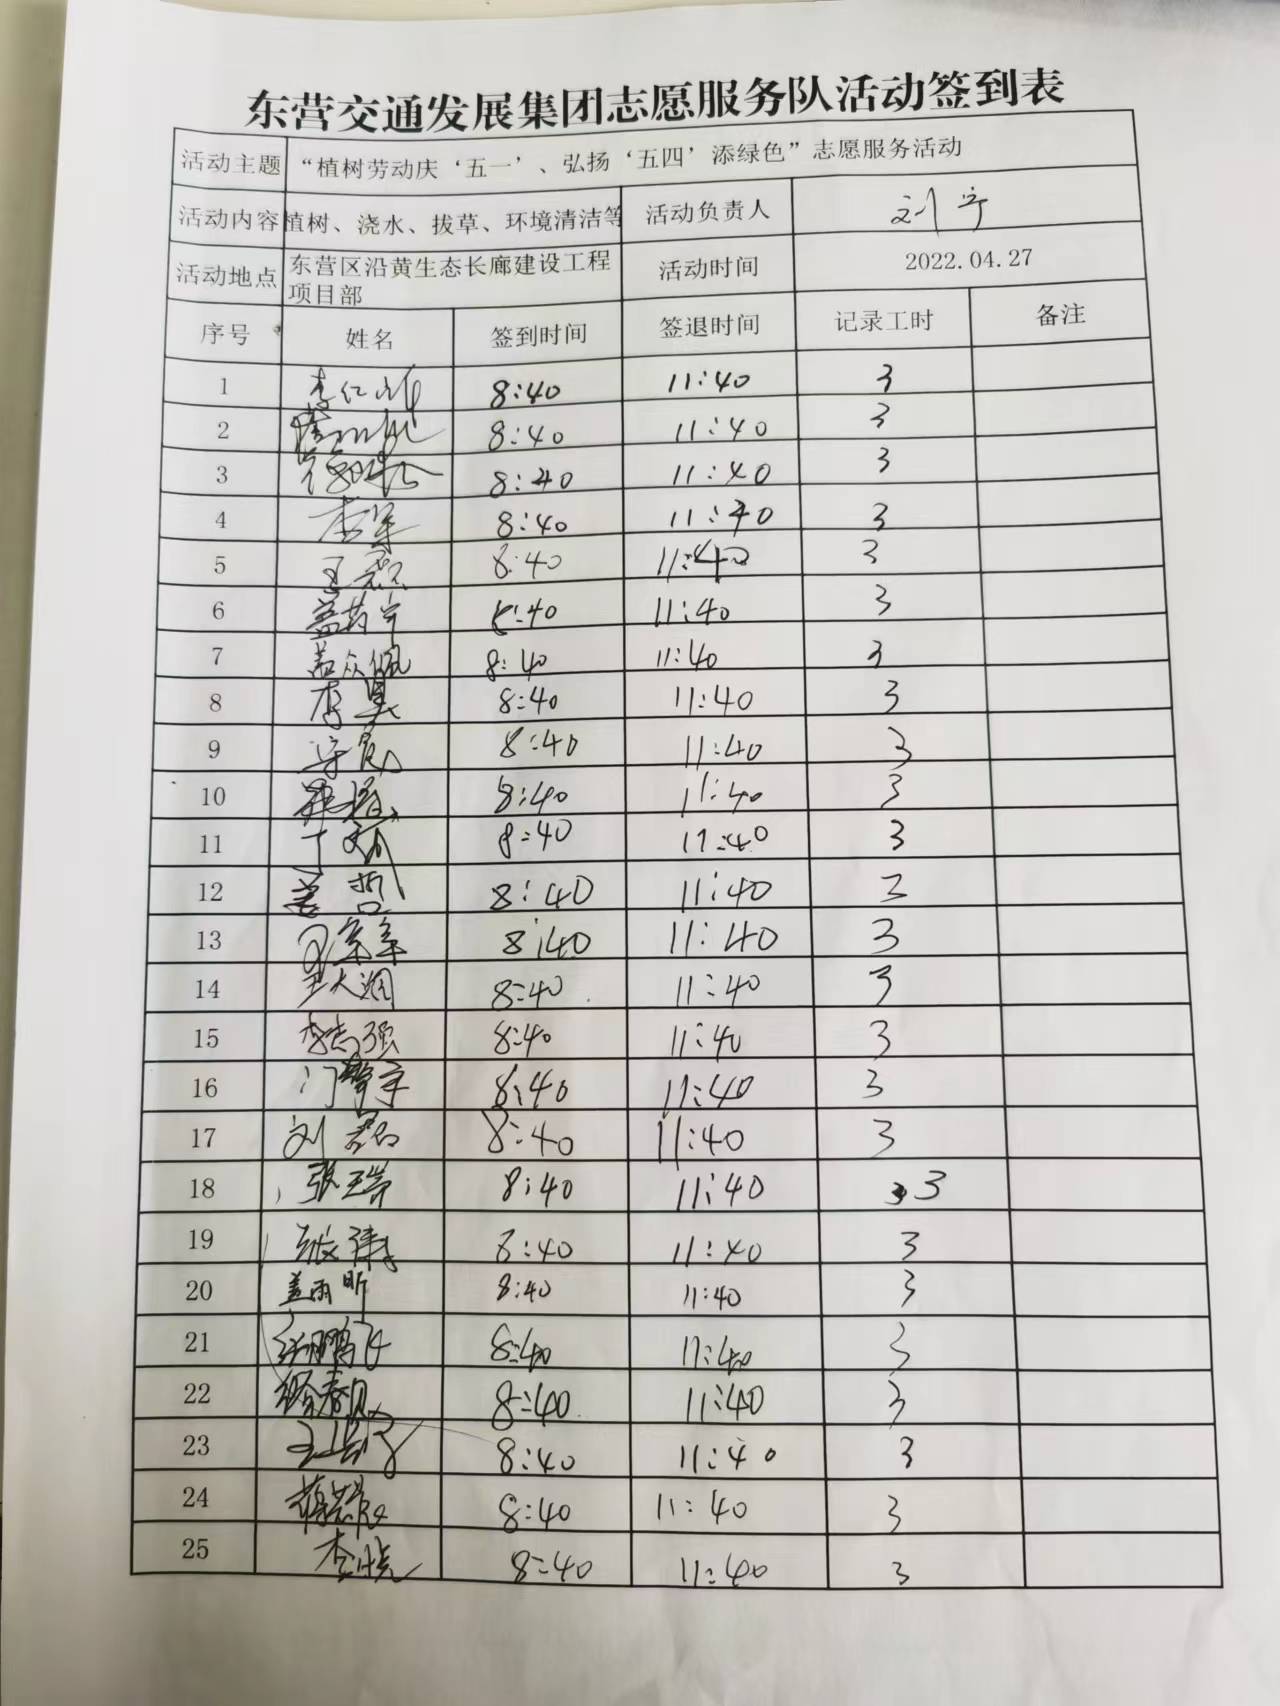 东营交通发展集团志愿服务队活动签到表
活动主题 “植树劳动庆‘五一’、弘扬‘五四’添绿色”志愿服务活动
活动内容 植树、浇水、拔草、环境清洁等 活动负责人 刘宁
活动地点 东营区沿黄生态长廊建设工程 活动时间 2022.04.27
项目部
序号 姓名 签到时间 签退时间 记录工时 备注
1 8:40 11:40 3
2 8:40 11:40 3
3 8:40 11:40 3
4 李军 8:40 11:40 3
5 王磊 8:40 11:40 3
6 8:40 11:40 3
7 盖众佩 8:40 11:40 3
8 李昊 8:40 11:40 3
9 8:40 11:40 3
10 8:40 11:40 3
11 丁斌 8:40 11:40 3
12 盖哲 8:40 11:40 3
13 8:40 11:40 3
14 王大润 8:40 11:40 3
15 李志强 8:40 11:40 3
16 8:40 11:40 3
17 刘磊 8:40 11:40 3
18 张瑞 8:40 11:40 3 3
19 张涛 8:40 11:40 3
20 盖雨昕 8:40 11:40 3
21 张鹏飞 8:40 11:40 3
22 8:40 11:40 3
23 8:40 11:40 3
24 8:40 11:40 3
25 李晓 8:40 11:40 3